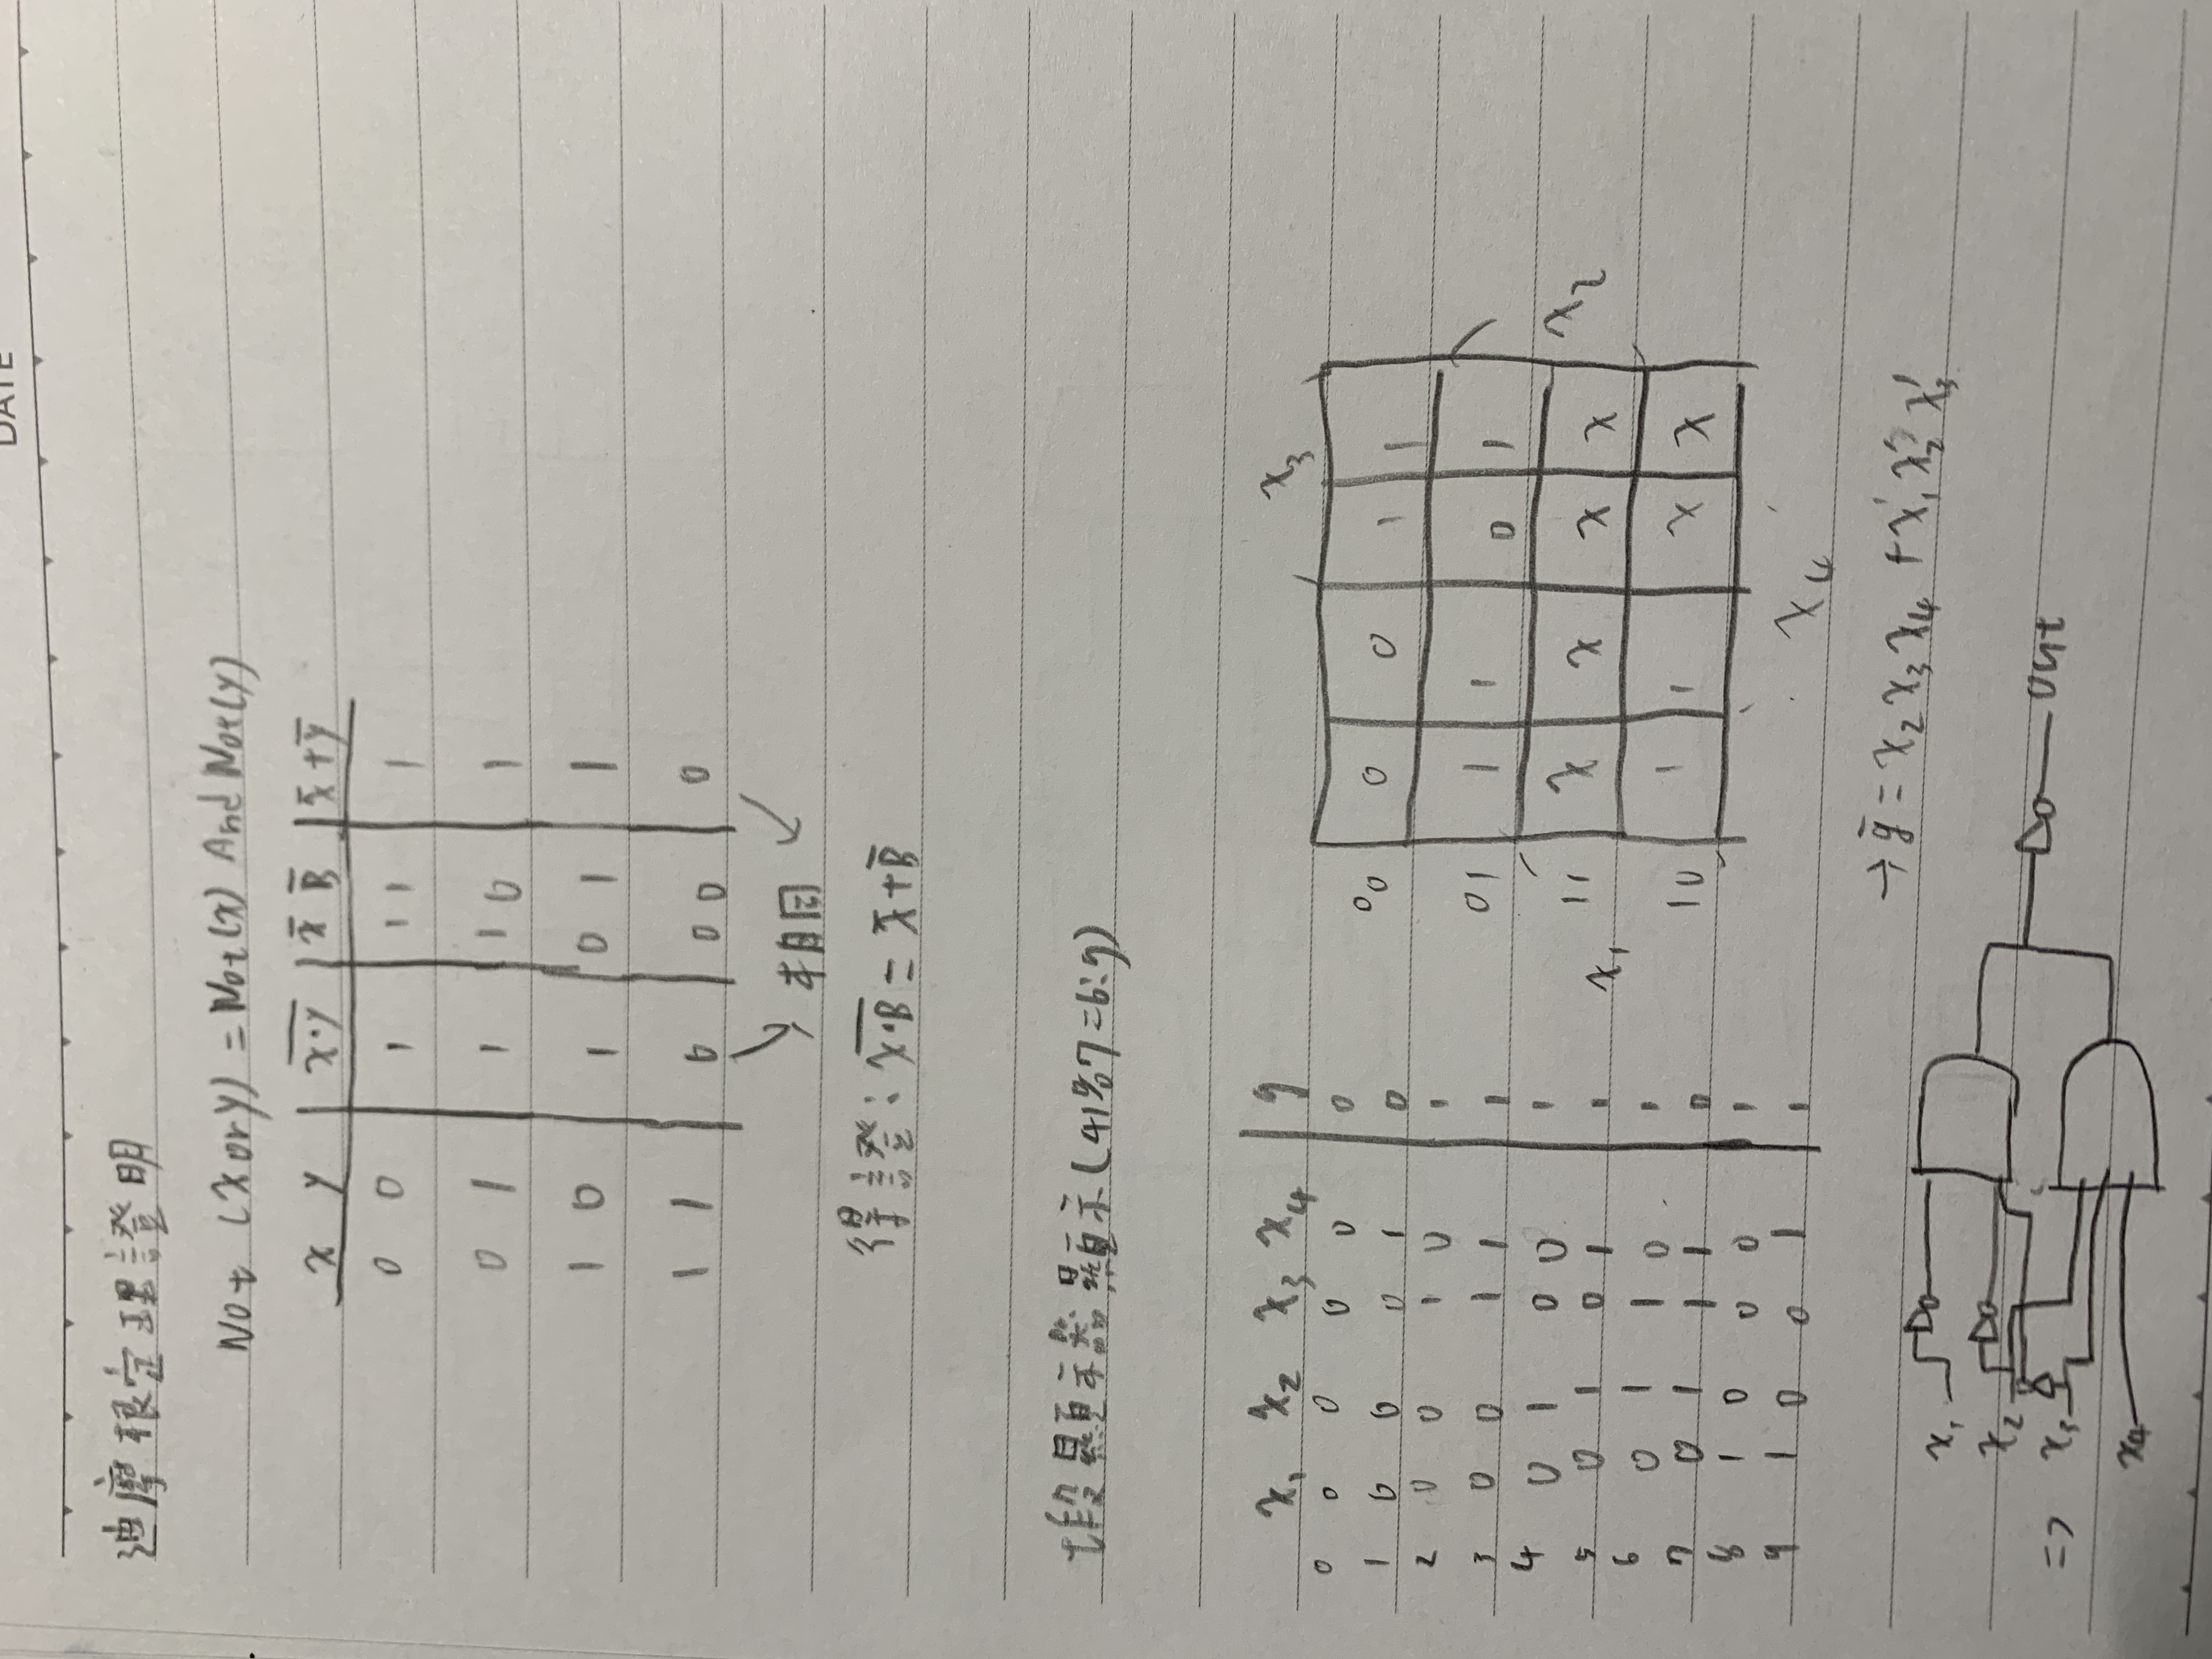 DATE
迪摩根定理證明
Not (x or y) = Not(x) And Not(y)
x y | x̅·̅y̅ | x̄ B̄ | x̄ + ȳ
0 0 | 1 | 1 1 | 1
0 1 | 1 | 1 0 | 1
1 0 | 1 | 0 1 | 1
1 1 | 0 | 0 0 | 0
相同
得證: x̅·̅B̅ = x̄ + B̄
七段顯示器顯示(41%7=6:g)
x₁ x₂ x₃ x₄ | g
0 0 0 0 0 | 0
1 0 0 0 1 | 0
2 0 0 1 0 | 1
3 0 0 1 1 | 1
4 0 1 0 0 | 1
5 0 1 0 1 | 1
6 0 1 1 0 | 1
7 0 1 1 1 | 0
8 1 0 0 0 | 1
9 1 0 0 1 | 1
x₃
00 0 0 1 1
01 1 1 0 1
11 x x x x
10 1 1 x x
x₁
x₂
x₄
→ ḡ = x₂ x₃ x₄ + x₁' x₂' x₃'
x₁
x₂
=> x₃
x₄
out